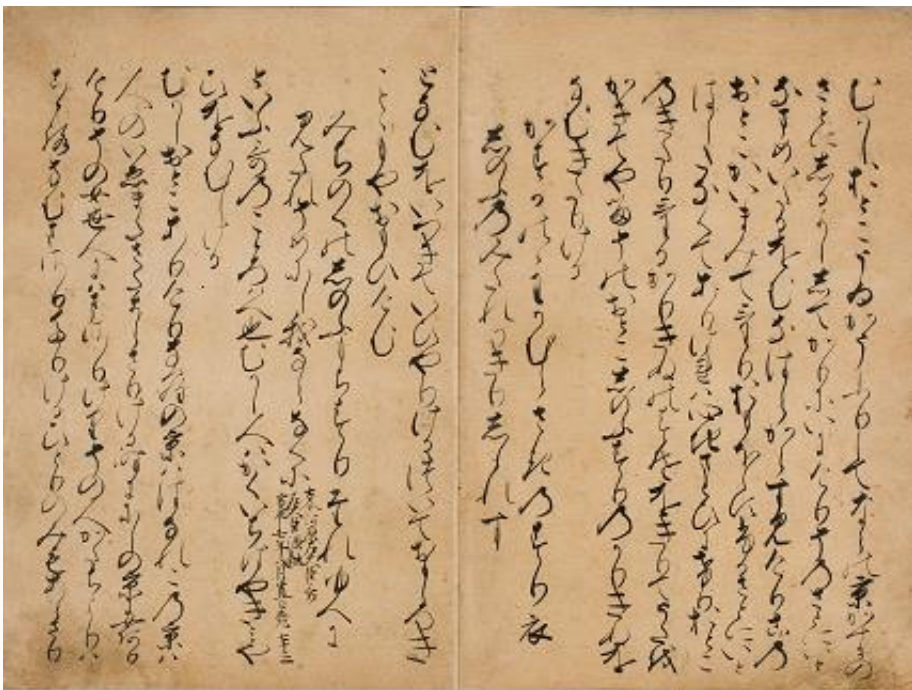 むかしおとこうゐかうふりしてならの京かすかの
さとにしるよししてかりにいにけりそのさとにいと
なまめいたるをむなはらからすみけりこの
おとこかいまみてけりおもほえすふるさとにいと
はしたなくてありけれは心地まとひにけりおとこ
のきたりけるかりきぬのすそをきりてうたを
かきてやるそのおとこしのふすりのかりきぬを
なむきたりける
かすかのゝわかむらさきのすり衣
しのふのみたれかきりしられす
となむをいつきていひやりけるついておもしろき
ことゝもやおもひけむ
みちのくのしのふもちすりたれゆへに
みたれそめにし我ならなくに
といふ哥のこゝろはへ也むかし人はかくいちはやきみや
ひをなむしける
むかしおとこありけりならの京ははなれこの京は
人のいゑまたさたまらさりける時にゝしの京に女あり
けりその女世人にはまされりけりその人かたちよりは
こゝろなむまさりたりけるひとりのみもあらさり